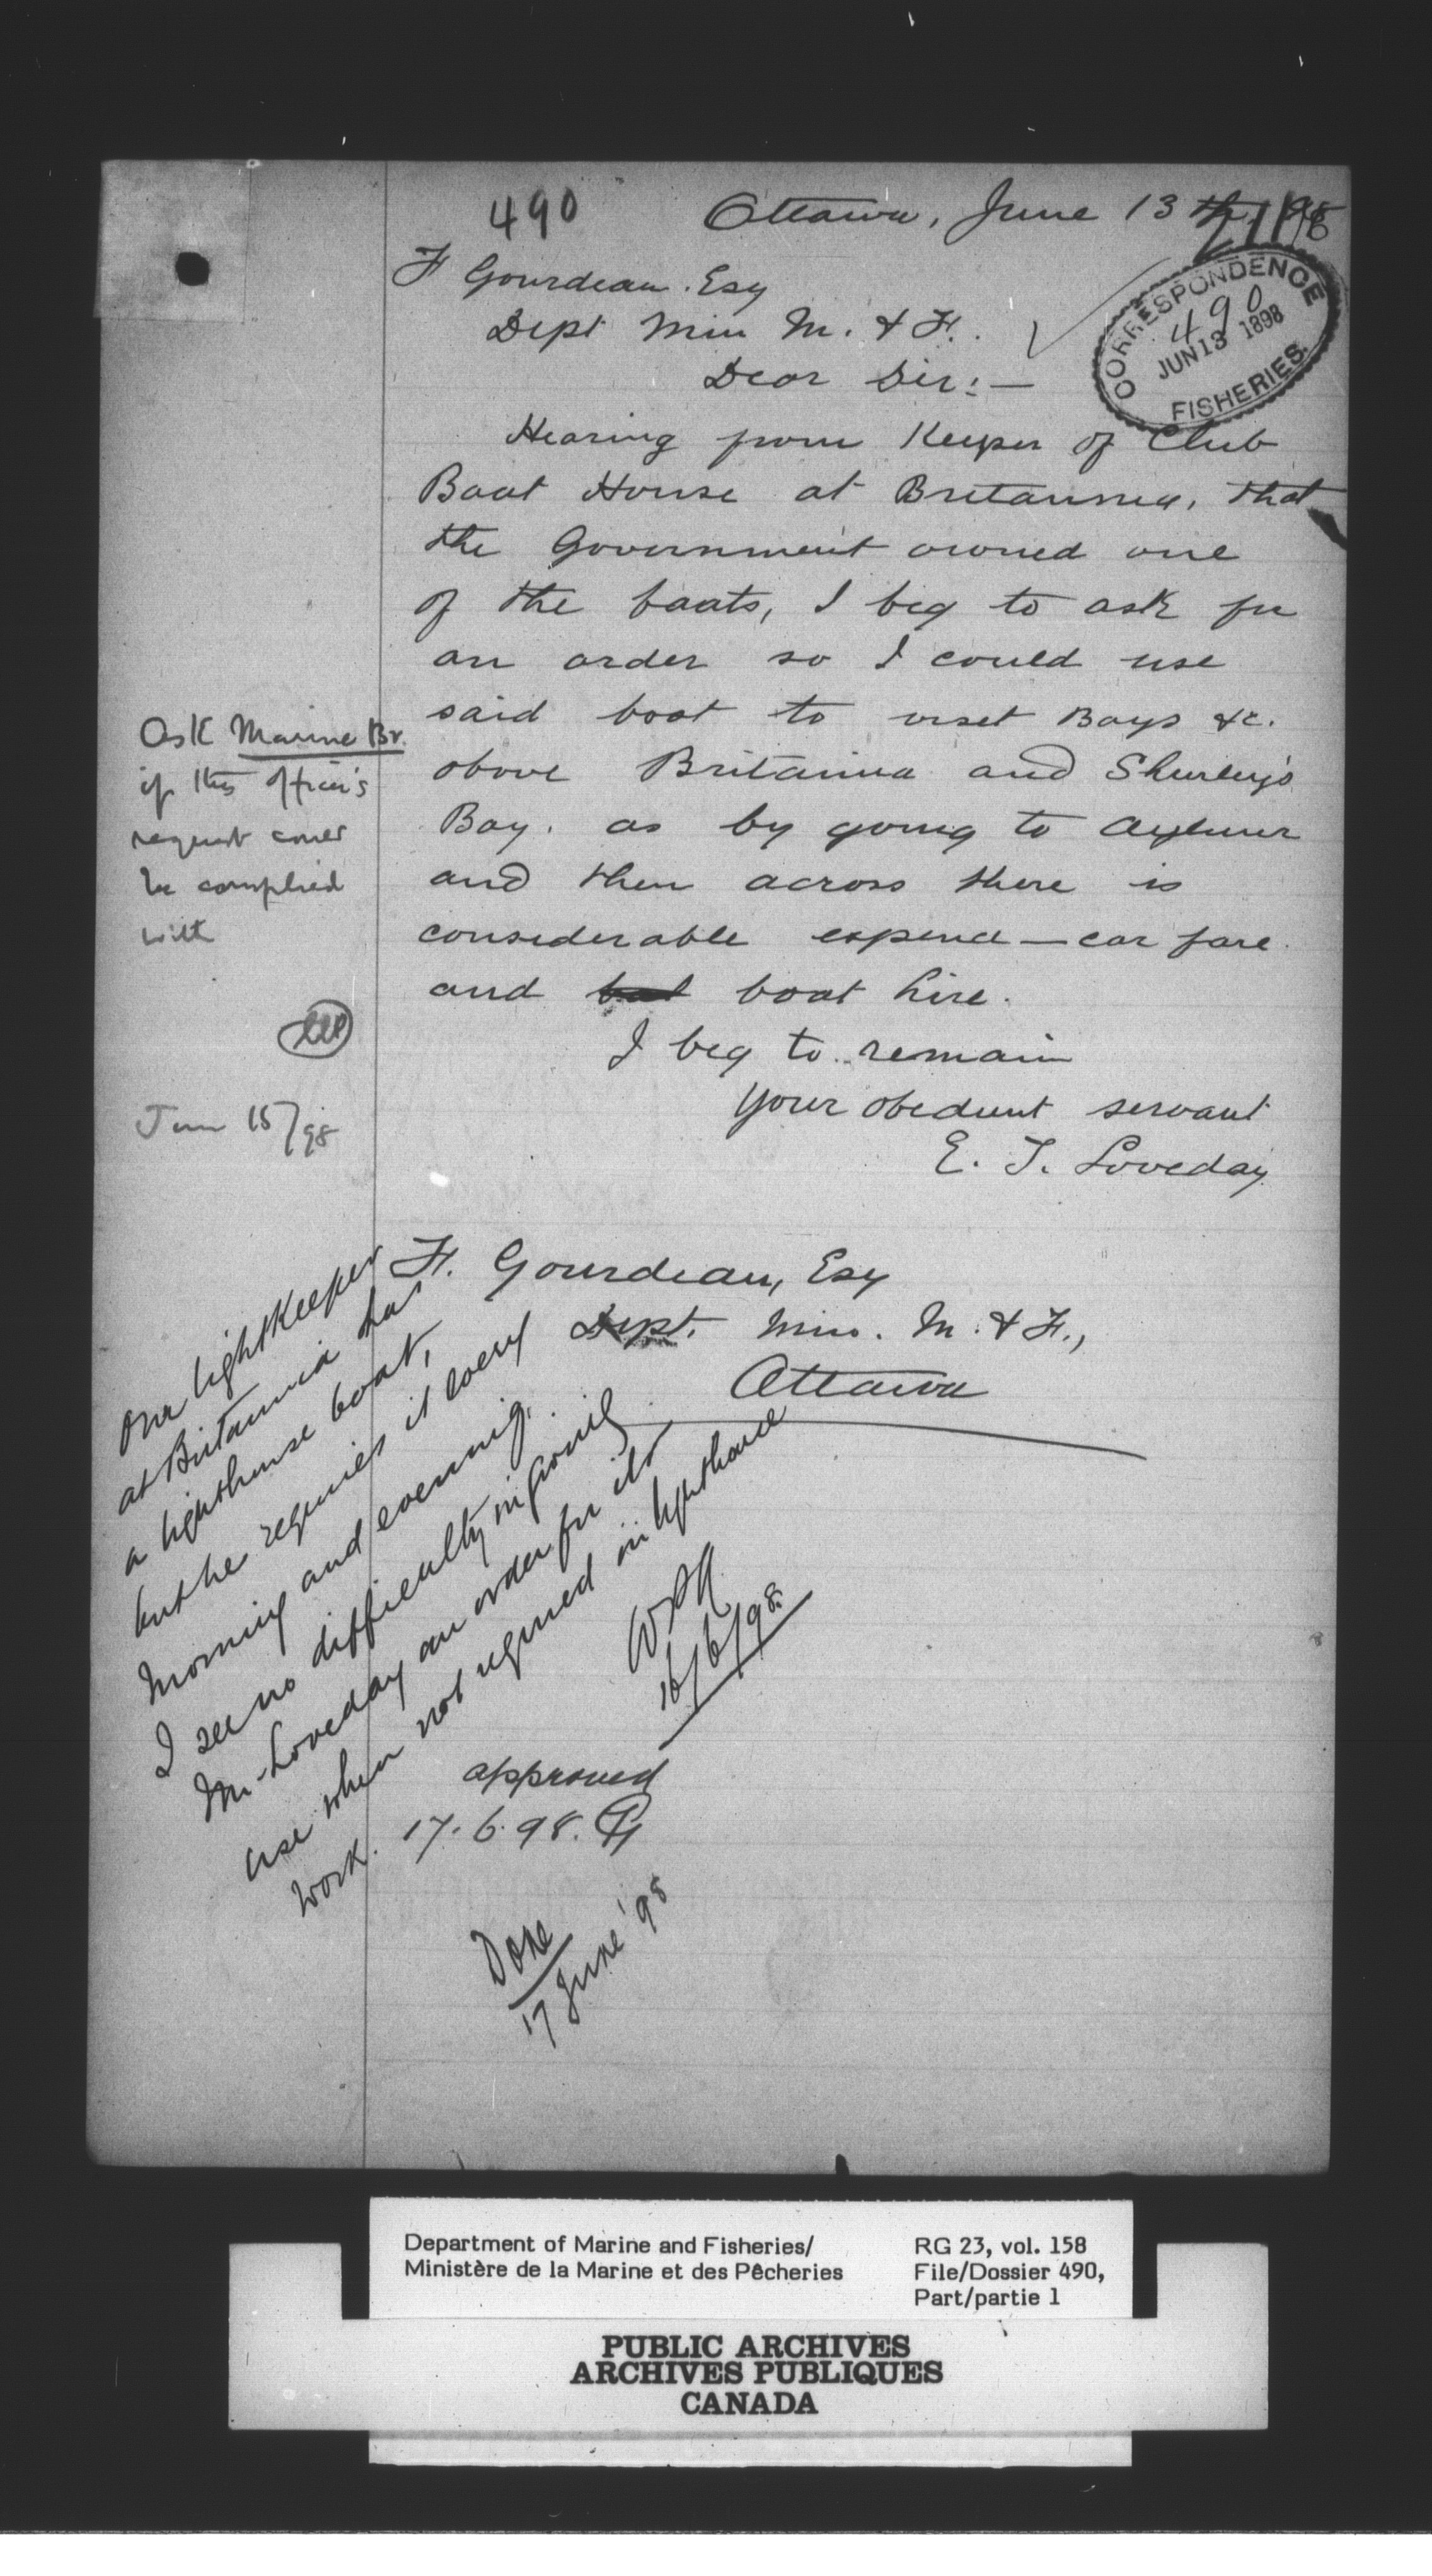 490
Ottawa, June 13th, 98
F Gourdeau. Esq
Dept Min M. & F.
CORRESPONDENCE
490
JUN 13 1898
FISHERIES.
Dear Sir:—
Hearing from Keeper of Club
Boat House at Britannia, that
the Government owned one
of the boats, I beg to ask for
an order so I could use
said boat to visit Bays &c.
above Britannia and Shirley's
Bay. as by going to Aylmer
and then across there is
considerable expence — car fare
and boat hire.
I beg to remain
Your obedient servant
E. T. Loveday
Ask Marine Br.
if this officer's
request could
be complied
with
Jun 15/98
F. Gourdeau, Esq
Dept. Min. M. & F.,
Ottawa
Our lightkeeper
at Britannia has
a lighthouse boat,
but he requires it every
morning and evening.
I see no difficulty in giving
Mr Loveday an order for its
use when not required in lighthouse
work.
16/6/98.
approved
17.6.98.
Done
17 June '98
Department of Marine and Fisheries/
Ministère de la Marine et des Pêcheries
RG 23, vol. 158
File/Dossier 490,
Part/partie 1
PUBLIC ARCHIVES
ARCHIVES PUBLIQUES
CANADA